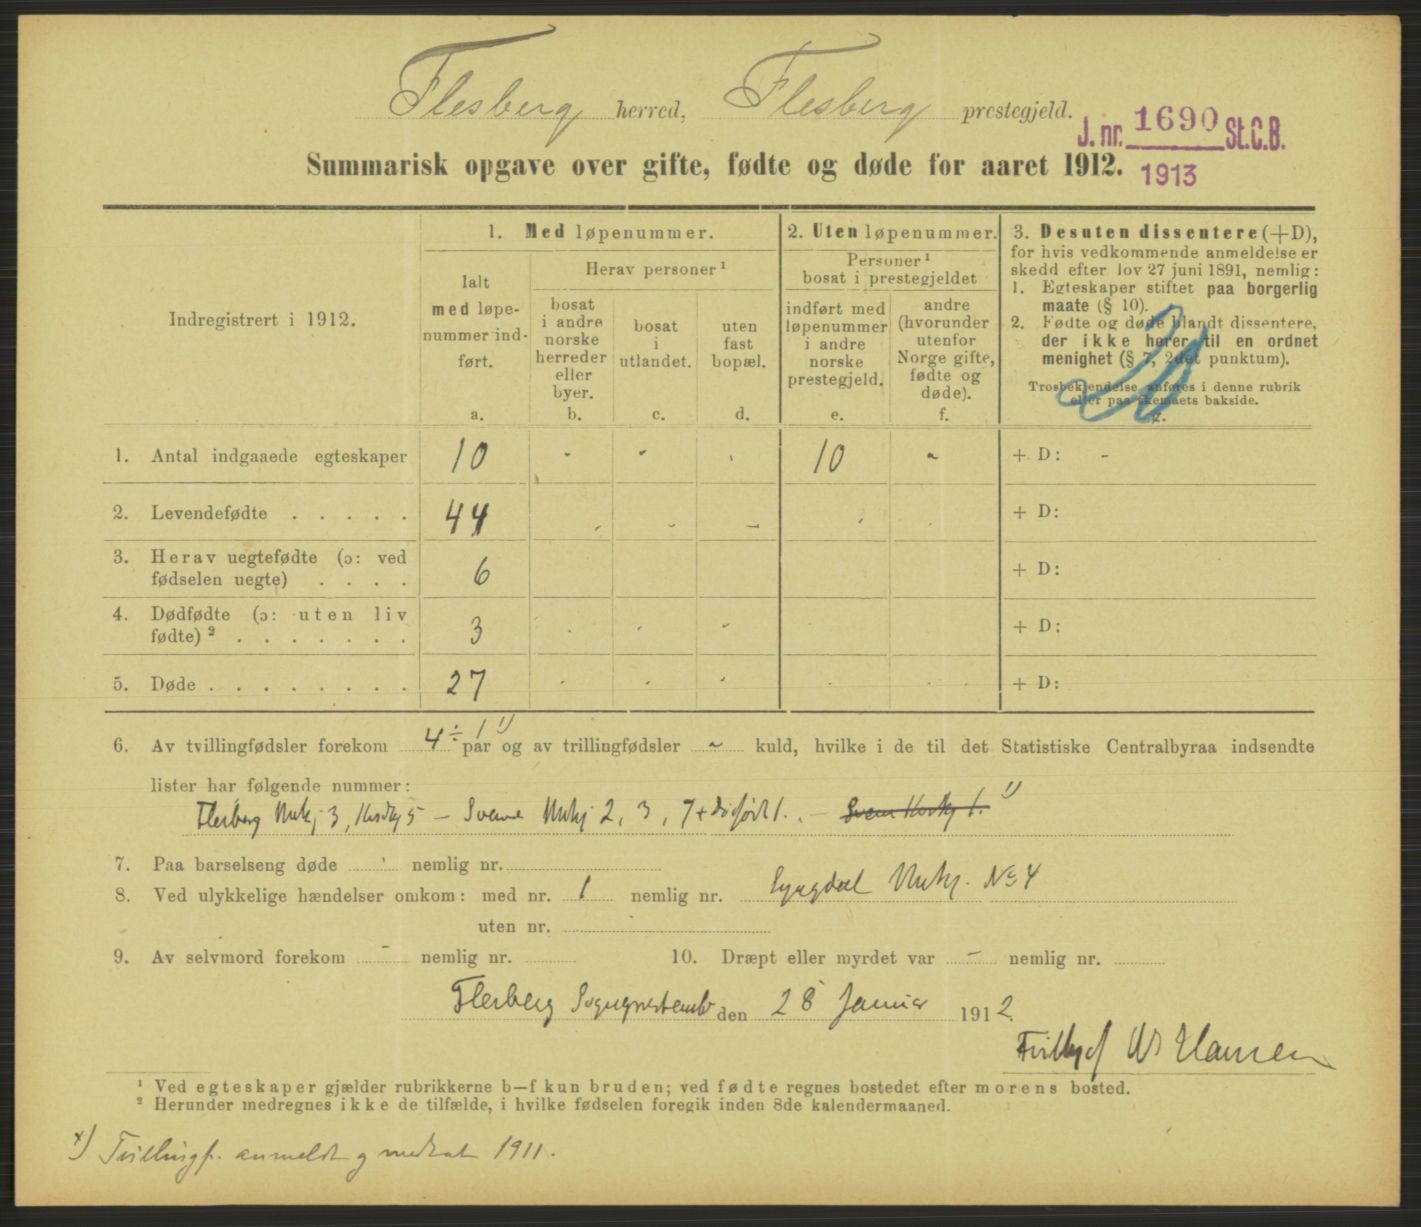 Flesberg herred, Flesberg prestegjeld.
J. nr. 1690 St.C.B.
1913
Summarisk opgave over gifte, fødte og døde for aaret 1912.
Indregistrert i 1912.
1. Med løpenummer.
Ialt
med løpe-
nummer ind-
ført.
a.
Herav personer¹
bosat
i andre
norske
herreder
eller
byer.
b.
bosat
i
utlandet.
c.
uten
fast
bopæl.
d.
2. Uten løpenummer.
Personer¹
bosat i prestegjeldet
indført med
løpenummer
i andre
norske
prestegjeld.
e.
andre
(hvorunder
utenfor
Norge gifte,
fødte og
døde).
f.
3. Desuten dissentere (+D),
for hvis vedkommende anmeldelse er
skedd efter lov 27 juni 1891, nemlig:
1. Egteskaper stiftet paa borgerlig
maate (§ 10).
2. Fødte og døde blandt dissentere,
der ikke hører til en ordnet
menighet (§ 7, 2det punktum).
Trosbekjendelse anføres i denne rubrik
eller paa skemaets bakside.
g.
1. Antal indgaaede egteskaper 10 - - - 10 - + D: -
2. Levendefødte . . . . . 44 - - - - - + D:
3. Herav uegtefødte (ɔ: ved
fødselen uegte) . . . . 6 + D:
4. Dødfødte (ɔ: uten liv
fødte)² . . . . . . . 3 - - - + D:
5. Døde . . . . . . . . 27 - - - - - + D:
6. Av tvillingfødsler forekom 4 ÷ 1 ¹⁾ par og av trillingfødsler - kuld, hvilke i de til det Statistiske Centralbyraa indsendte
lister har følgende nummer:
Flesberg Mkj 3, Kvkj 5 – Svene Mkj 2, 3, 7 + dødfødt 1. –
7. Paa barselseng døde - nemlig nr.
8. Ved ulykkelige hændelser omkom: med nr. 1 nemlig nr. Lyngdal Mkj. No 4
uten nr.
9. Av selvmord forekom - nemlig nr. 10. Dræpt eller myrdet var - nemlig nr.
Flesberg Sogneprestemb den 28 Januar 1912.
Hansen
¹ Ved egteskaper gjælder rubrikkerne b—f kun bruden; ved fødte regnes bostedet efter morens bosted.
² Herunder medregnes ikke de tilfælde, i hvilke fødselen foregik inden 8de kalendermaaned.
*) Tvillingf. anmeldt og medtat 1911.